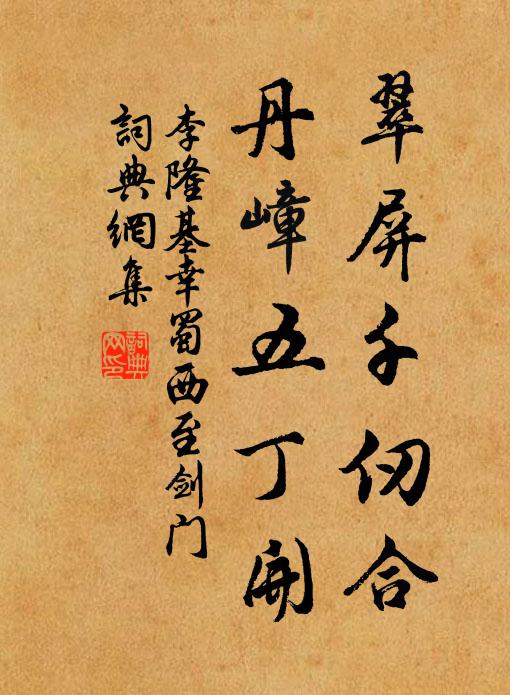 翠屏千仞合
丹嶂五丁開
李隆基幸蜀西至劍门
詞典網集
詞典
网印